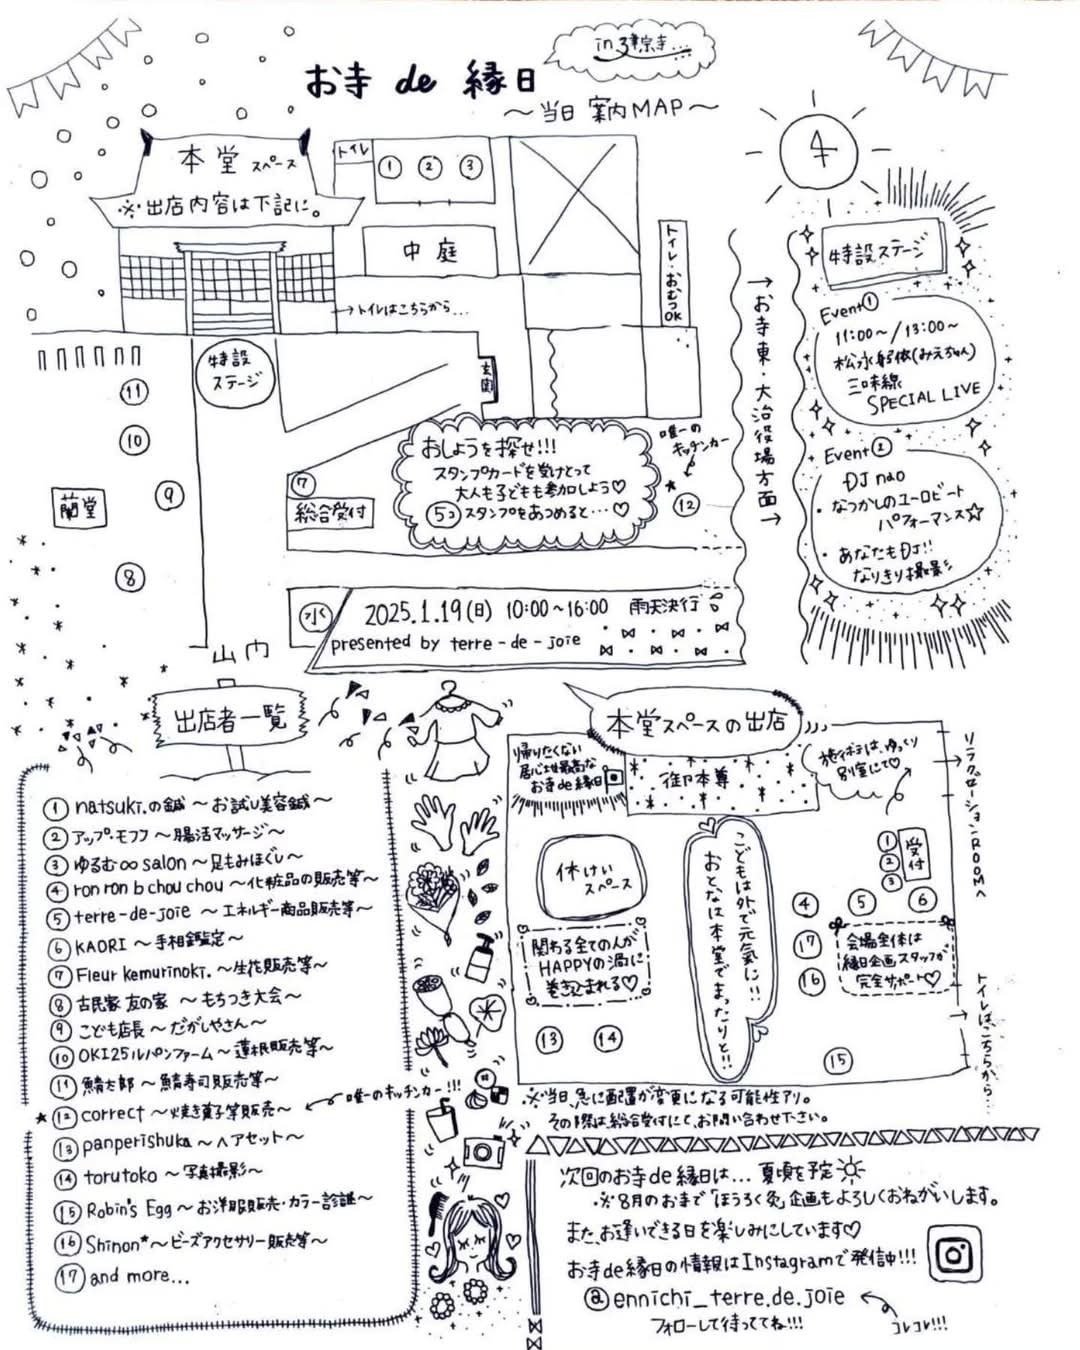 お寺 de 縁日
〜当日 案内MAP〜
本堂 スペース
※出店内容は下記に。
トイレ
① ② ③
中庭
→トイレはこちらから…
トイレ・おむつOK
→お寺東・大治役場方面→
特設
ステージ
玄関
⑪
⑩
⑨
⑧
蘭堂
⑦
総合受付
おしょうを探せ!!!
スタンプカードを受けとって
大人も子どもも参加しよう♡
5コ スタンプをあつめると…♡
唯一の
キッチンカー
★
⑫
水
山内
2025.1.19(日) 10:00〜16:00 雨天決行
presented by terre-de-joie
特設ステージ
Event①
11:00〜/13:00〜
(みえちゃん)
三味線
SPECIAL LIVE
Event②
DJ nao
・なつかしのユーロビート
パフォーマンス☆
・あなたもDJ!!
なりきり撮影
出店者一覧
① natsuki.の鍼 〜お試し美容鍼〜
② アップ・モフフ 〜腸活マッサージ〜
③ ゆるむ∞salon 〜足もみほぐし〜
④ ron ron b chou chou 〜化粧品の販売等〜
⑤ terre-de-joie 〜エネルギー商品販売等〜
⑥ KAORI 〜手相鑑定〜
⑦ Fleur kemurinoki. 〜生花販売等〜
⑧ 古民家 友の家 〜もちつき大会〜
⑨ こども店長 〜だがしやさん〜
⑩ OKI25ルパンファーム 〜蓮根販売等〜
⑪ 鯖太郎 〜鯖寿司販売等〜
★⑫ correct 〜焼き菓子等販売〜 ←唯一のキッチンカー!!!
⑬ panperishuka 〜ヘアセット〜
⑭ torutoko 〜写真撮影〜
⑮ Robin's Egg 〜お洋服販売・カラー診断〜
⑯ Shinon* 〜ビーズアクセサリー販売等〜
⑰ and more...
本堂スペースの出店
帰りたくない
居心地最高な
お寺de縁日
御本尊
施術は、ゆっくり
別室にて♡
→リラクゼーションROOMへ
休けい
スペース
こどもは外で元気に!!
おとなは本堂でまったりと!!
①
②
③
受付
④ ⑤ ⑥
⑰
⑯
会場全体は
縁日企画スタッフが
完全サポート♡
関わる全ての人が
HAPPYの渦に
巻き込まれる♡
⑬ ⑭
⑮
→トイレはこちらから…
※当日、急に配置が変更になる可能性アリ。
その際は総合受付にて、お問い合わせ下さい。
次回のお寺de縁日は… 夏頃を予定
※8月のお寺で「ほうろく灸」企画もよろしくおねがいします。
また、お逢いできる日を楽しみにしています♡
お寺de縁日の情報はInstagramで発信中!!!
@ennichi_terre.de.joie
フォローして待っててね!!!
コレコレ!!!